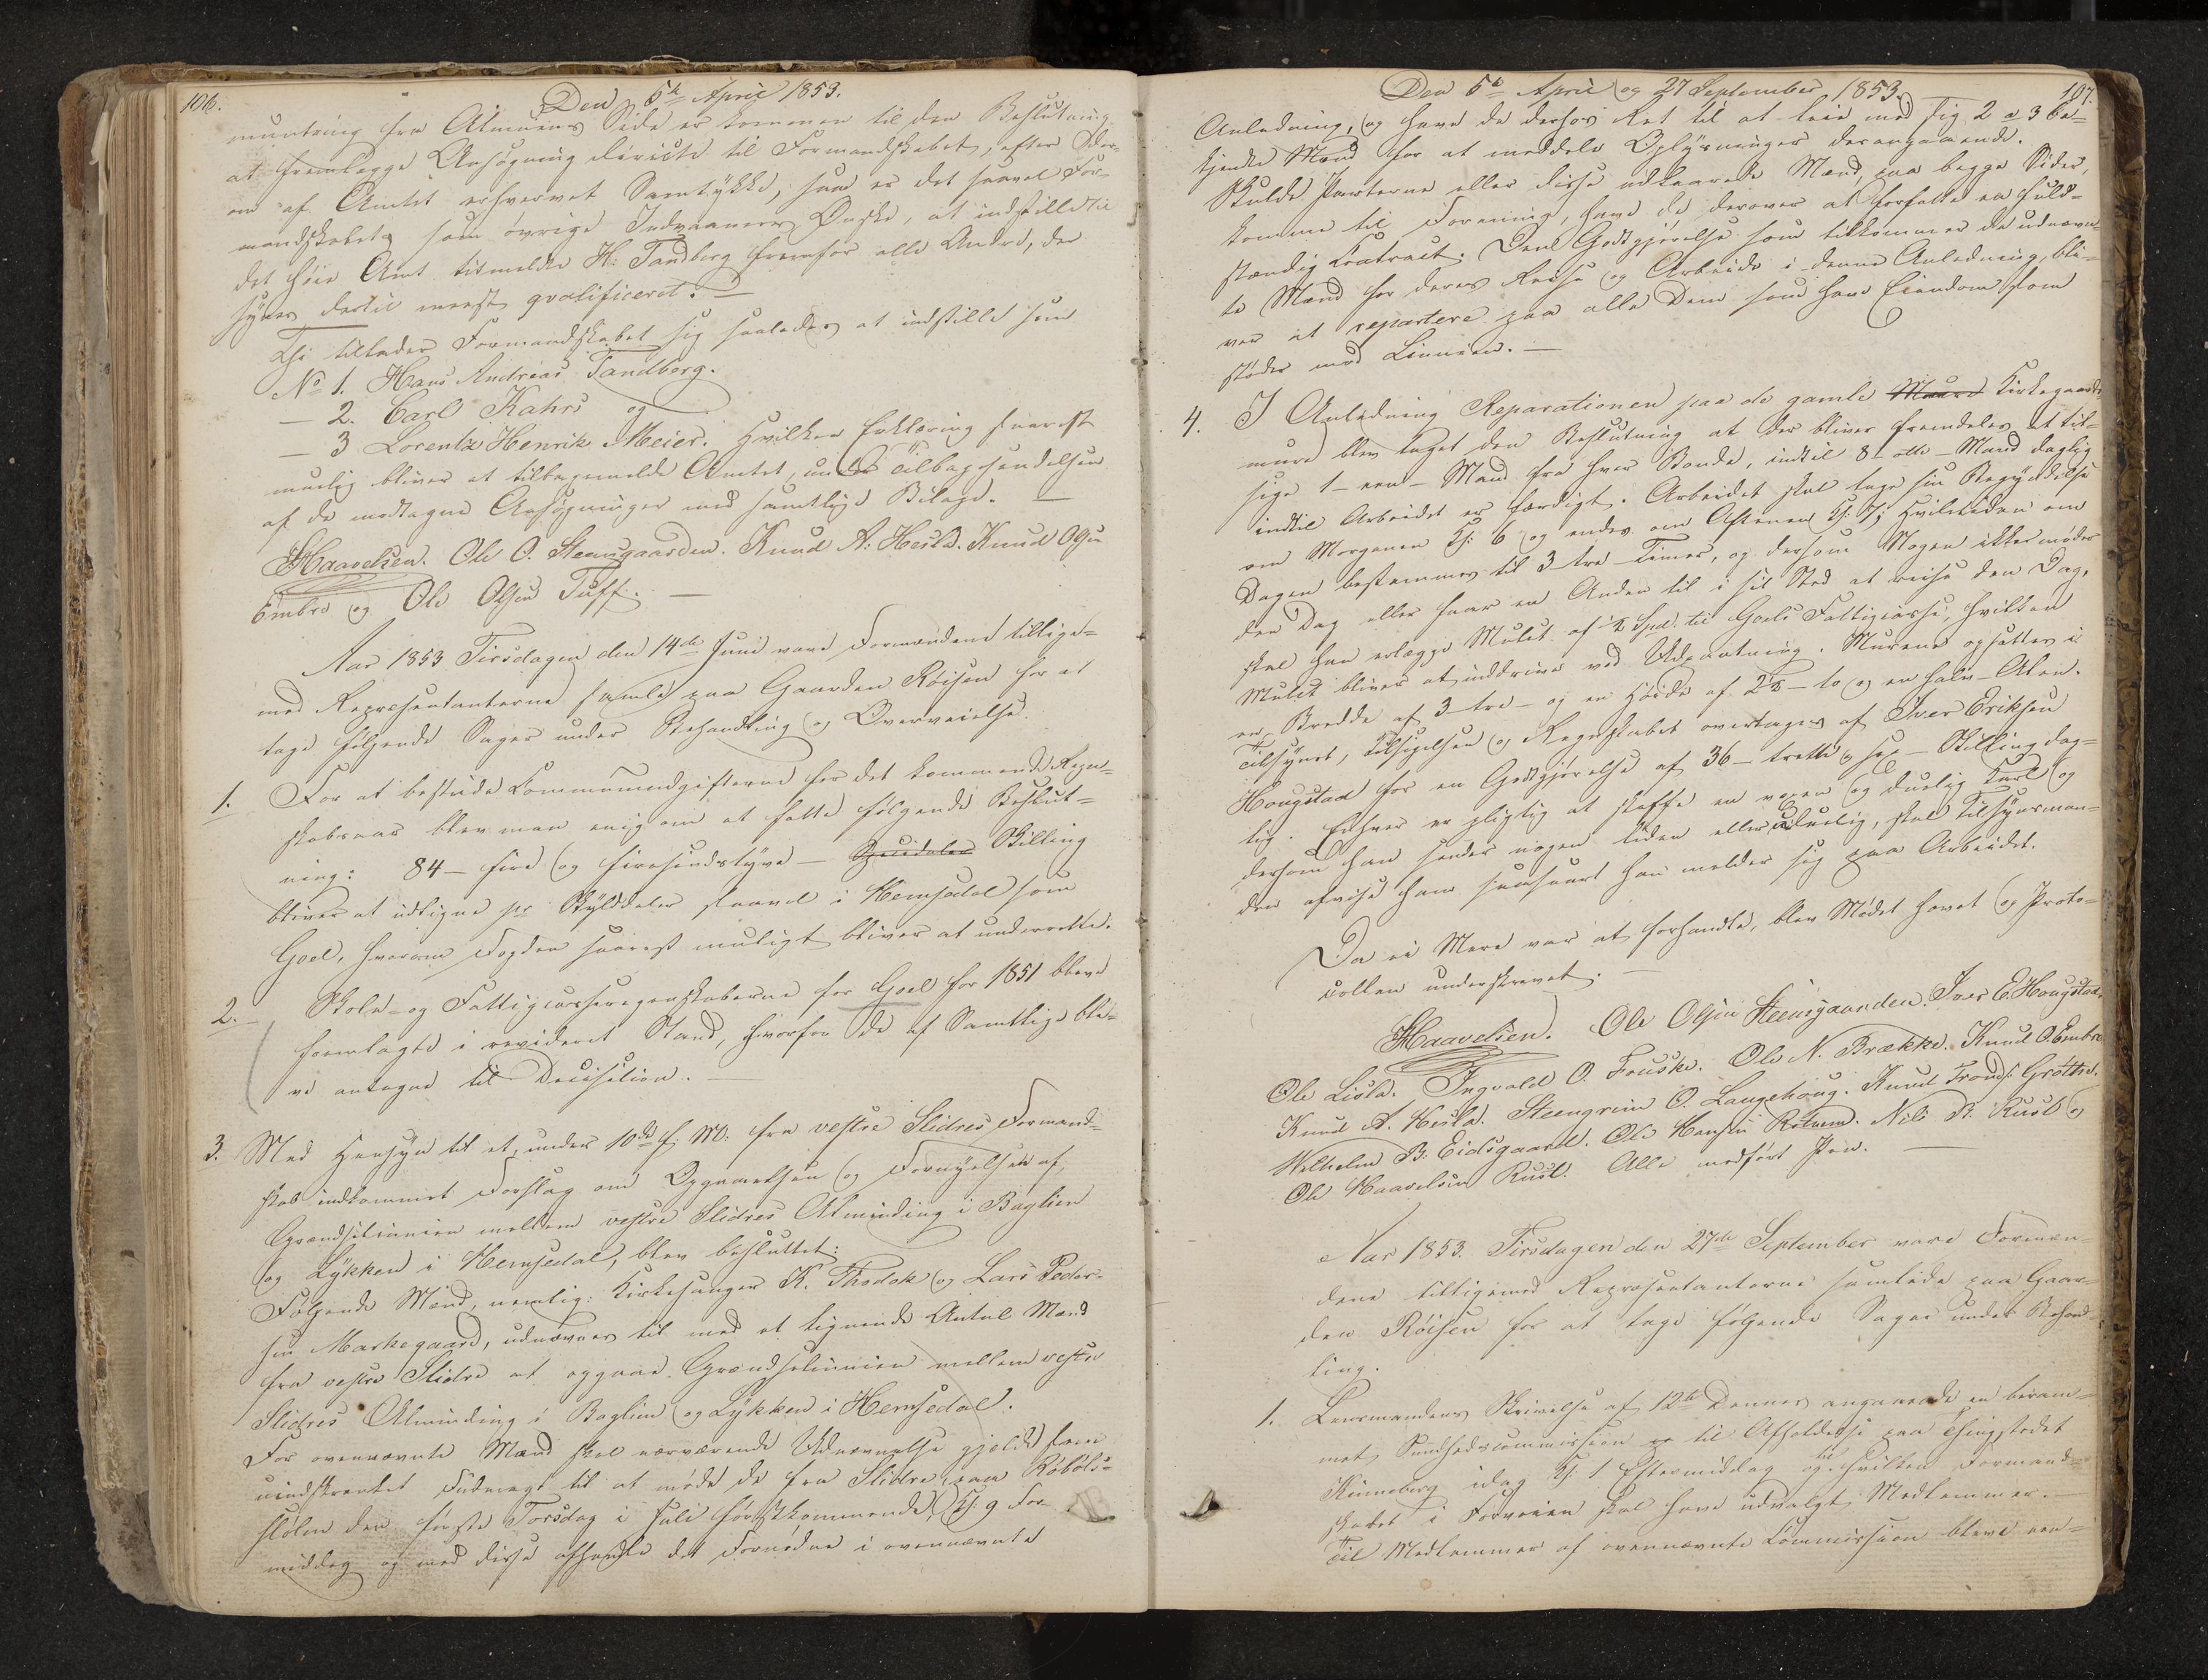 106.
Den 5te April 1853.
muntring fra Almuens Side er kommen til den Beslutning
at fremlægge Ansøgning directe til Formandskabet, efter der-
om af Amtet erhvervet Samtykke, saa er det saavel For-
mandskabets som øvrige Indvaaneres Ønske, at indstille til
det høie Amt titmeldte H: Tandberg fremfor alle Andre, der
synes dertil meest qvalificeret. —
Thi tillader Formandskabet sig saaledes at indstille som
No 1. Hans Andreas Tandberg.
— 2. Carl Kahrs og
— 3 Lorentz Henrik Meier. Hvilken Erklæring snarest
muelig bliver at tilbagemelde Amtet, under Tilbagesendelsen
af de modtagne Ansøgninger med samtlige Bilage. —
Haavelsen. Ole O. Steensgaarden. Knud A: Hesla. Knud Olsen
Embre og Ole Olsen Tuff. —
Aar 1853 Tirsdagen den 14de Juni vare Formændene tillige-
med Repræsentanterne samlede paa Gaarden Röisen for at
tage følgende Sager under Behandling og Overveielse.
1. For at bestride Kommuneudgifterne for det kommende Regn-
skabsaar blev man enig om at fatte følgende Beslut-
ning: 84 — fire og firesindstyve — Speciedaler Skilling
bliver at udligne pr Skylddaler saavel i Hemsedal som
Goel, hvorom Fogden snarest muligt bliver at underrette.
2. Skole- og Fattigcasseregnskaberne for Goel for 1851 bleve
fremlagte i revideret Stand, hvorfor de af Samtlige ble-
ve antagne til Decision. —
3. Med Hensyn til et under 10de f. M. fra vestre Slidres Formand-
skab indkommet Forslag om Opgaaelsen og Fornyelsen af
Grændselinnien mellem vestre Slidres Alminding i Baglien
og Lykken i Hemsedal, blev besluttet:
Følgende Mænd, nemlig: Kirkesanger K. Thodok og Lars Peder-
sen Markegaard, udnævnes til med et lignende Antal Mænd
fra vestre Slidre at opgaae Grændselinnien mellem vestre
Slidres Alminding i Baglien og Lykken i Hemsedal.
For ovennævnte Mænd skal nærværende Udnævnelse gjælde som
uindskrænket Fuldmagt til at møde de fra Slidre, paa Köböls-
stølen den første Torsdag i Juli førstkommende, Kl: 9 For-
middag og med disse afhandle det Fornødne i ovennævnte
Den 5te April og 27 September 1853.
107.
Anledning, og have de derhos Ret til at leie med sig 2 a 3 be-
kjendte Mænd for at meddele Oplysninger desangaaende.
Skulde Parterne eller disse udkaarede Mænd, paa begge Sider,
komme til Forening, have de derover at forfatte en fuld-
stændig Contract. Den Godtgjørelse som tilkommer de udnævn-
te Mænd for deres Reise og Arbeide i denne Anledning, bli-
ver at repartere paa alle Dem som have Eiendom som
støder mod Linnien. —
4. I Anledning Reparationen paa de gamle Muure Kirkegaards
mure blev taget den Beslutning at der bliver fremdeles at til-
sige 1 — een — Mand fra hver Bonde, indtil 8 — otte — Mand daglig
indtil Arbeidet er færdigt. Arbeidet skal tage sin Begyndelse
om Morgenen Kl: 6 og endes om Aftenen Kl: 7; Hviletiden om
Dagen bestemmes til 3 — tre — Timer, og dersom Nogen ikke møder
den Dag eller faar en Anden til i sit Sted at reise den Dag,
skal han erlægge Mulct af ½ Spd. til Goels Fattigcasse, hvilken
Mulct bliver at inddrive ved Udpantning. Murene opsættes i
en Bredde af 3 — tre — og en Høide af 2½ — to og en halv — Alen.
Tilsynet, Tilsigelsen og Regnskabet overtages af Iver Eriksen
Hougstad for en Godtgjørelse af 36 — tretti og sex — Skilling dag-
lig. Enhver er pligtig at skaffe en voxen og duelig Karl og
dersom han sender nogen liden eller uduelig, skal Tilsynsman-
den afvise ham saasnart han melder sig paa Arbeidet.
Da ei Mere var at forhandle, blev Mødet hævet og Proto-
collen underskrevet. —
Haavelsen. Ole Olsen Steensgaarden. Iver E. Hougstad.
Ole Lisla. Ingvald O. Fouske. Ole N. Brække. Knud O. Embre
Knud A. Hesla. Steengrim O. Langehoug. Knud Tronds: Grøthe.
Wilhelm B: Eidsgaard. Ole Hansen Rotnem. Nils N. Kust og
Ole Haavelsen Rust. Alle medført Pen. —
Aar 1853. Tirsdagen den 27de September vare Formæn-
dene tilligemed Repræsentanterne samlede paa Gaar-
den Röisen for at tage følgende Sager under Behand-
ling.
1. Lensmandens Skrivelse af 12te Dennes angaaende en beram-
met Sundhedscommission er til Afholdelse paa Thingstedet
Kinneberg idag Kl: 1 Eftermiddag og til hvilken Formand-
skabet i Forveien skal have udvalgt Medlemmer. —
Til Medlemmer af ovennævnte Commission bleve een-